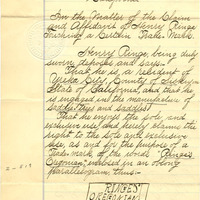 In the Matter of the Claim
and Affidavit of Henry Ringe
to a Certain Trade-Mark.
Henry Ringe, being duly
sworn deposes and says:
That he is a resident of
City, County,
State of California, and that he
is engaged in the manufacture of
and saddles.
That he enjoys the sole, and
exclusive use, and hereby claims the
right to the sole and exclusive
use, as and for the purpose of a
Trade mark of the words "Ringe's
Oregonian" enclosed in an oblong
parallelogram thus:-
RINGE'S
OREGONIAN